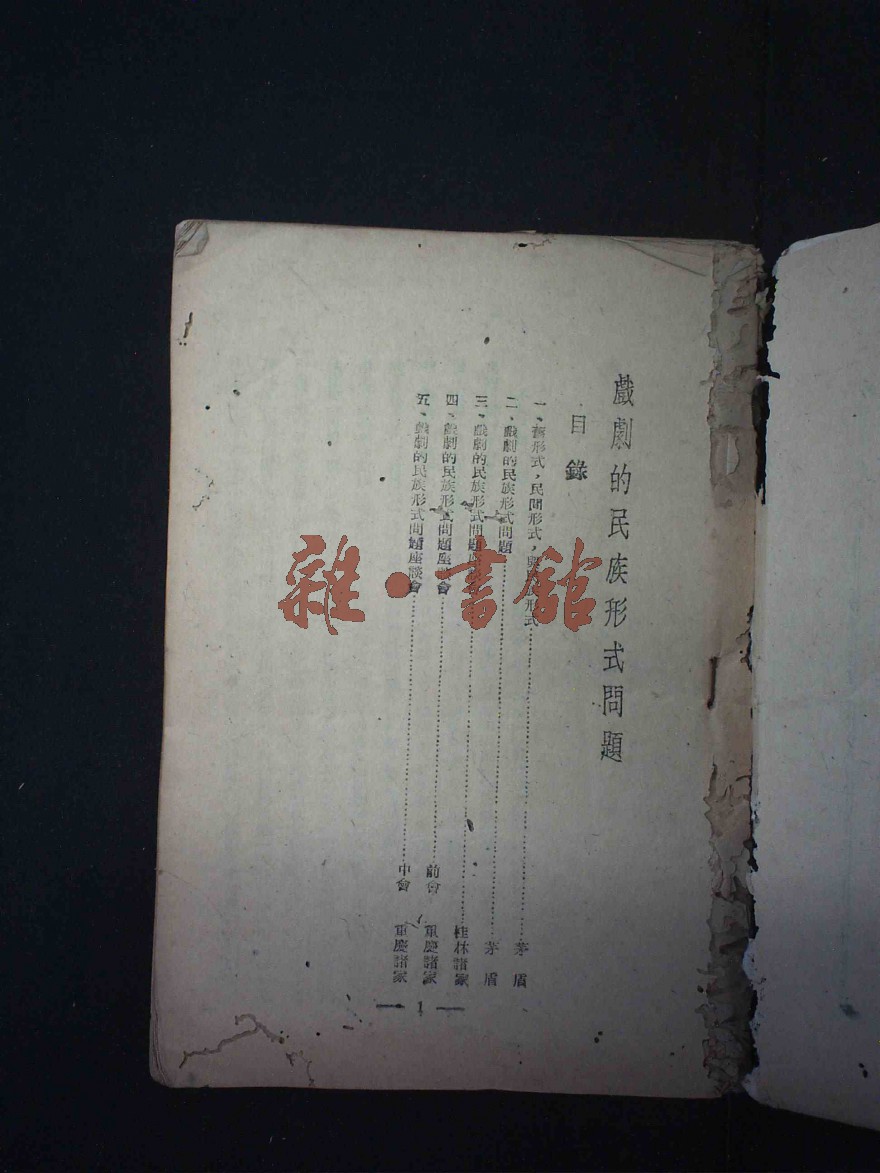 戲劇的民族形式問題
目錄
一、舊形式，民間形式，與 民形式……茅盾
二、戲劇的民族形式問題……茅盾
三、戲劇的民族形式問題座 ……桂林諸家
四、戲劇的民族形式問題座談會……前會 重慶諸家
五、戲劇的民族形式問題座談會……中會 重慶諸家
— 1 —
雜·書館